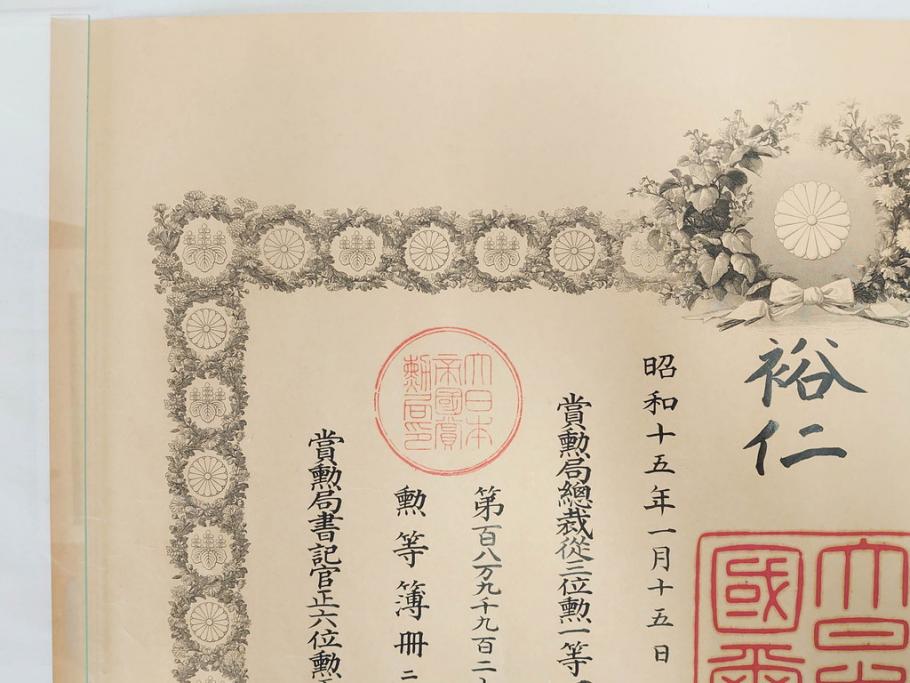 裕仁
大日
國
昭和十五年一月十五日
賞勲局總裁從三位勲一等
大日本
帝國賞
勲局印
第百八万九千九百二
勲等簿冊二
賞勲局書記官正六位勲